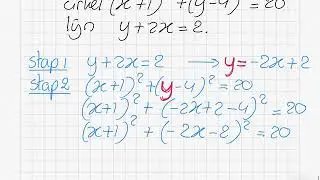 cirkel (x+1)² + (y-4)² = 20
lijn y+2x = 2.
stap 1 y+2x=2 → y=-2x+2
stap 2 (x+1)²+(y-4)² = 20
(x+1)² + (-2x+2-4)² = 20
(x+1)² + (-2x-2)² = 20